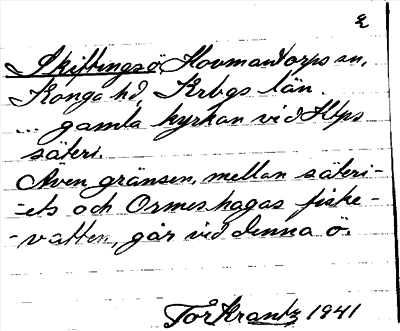 E
Skiftingsö, Hovmantorps sn,
Konga hd, Krbgs län.
... gamla kyrkan vid Htps
säteri.
Även gränsen, mellan säteri-
-ets och Ormeshagas fiske-
-vatten, går vid denna ö.
Tor Krantz 1941